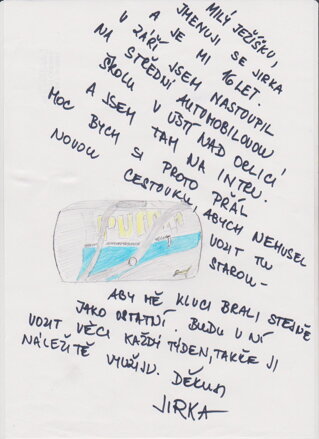 MILÝ JEŽÍŠKU,
JMENUJI SE JIRKA
A JE MI 16 LET.
V ZÁŘÍ JSEM NASTOUPIL
NA STŘEDNÍ AUTOMOBILOVOU
ŠKOLU V ÚSTÍ NAD ORLICÍ
A JSEM TAM NA INTRU.
MOC BYCH SI PROTO PŘÁL
NOVOU CESTOVKU, ABYCH NEMUSEL
VOZIT TU
STAROU -
PUMA
ABY MĚ KLUCI BRALI STEJNĚ
JAKO OSTATNÍ. BUDU V NÍ
VOZIT VĚCI KAŽDÝ TÝDEN, TAKŽE JI
NÁLEŽITĚ VYUŽIJU. DĚKUJI
JIRKA